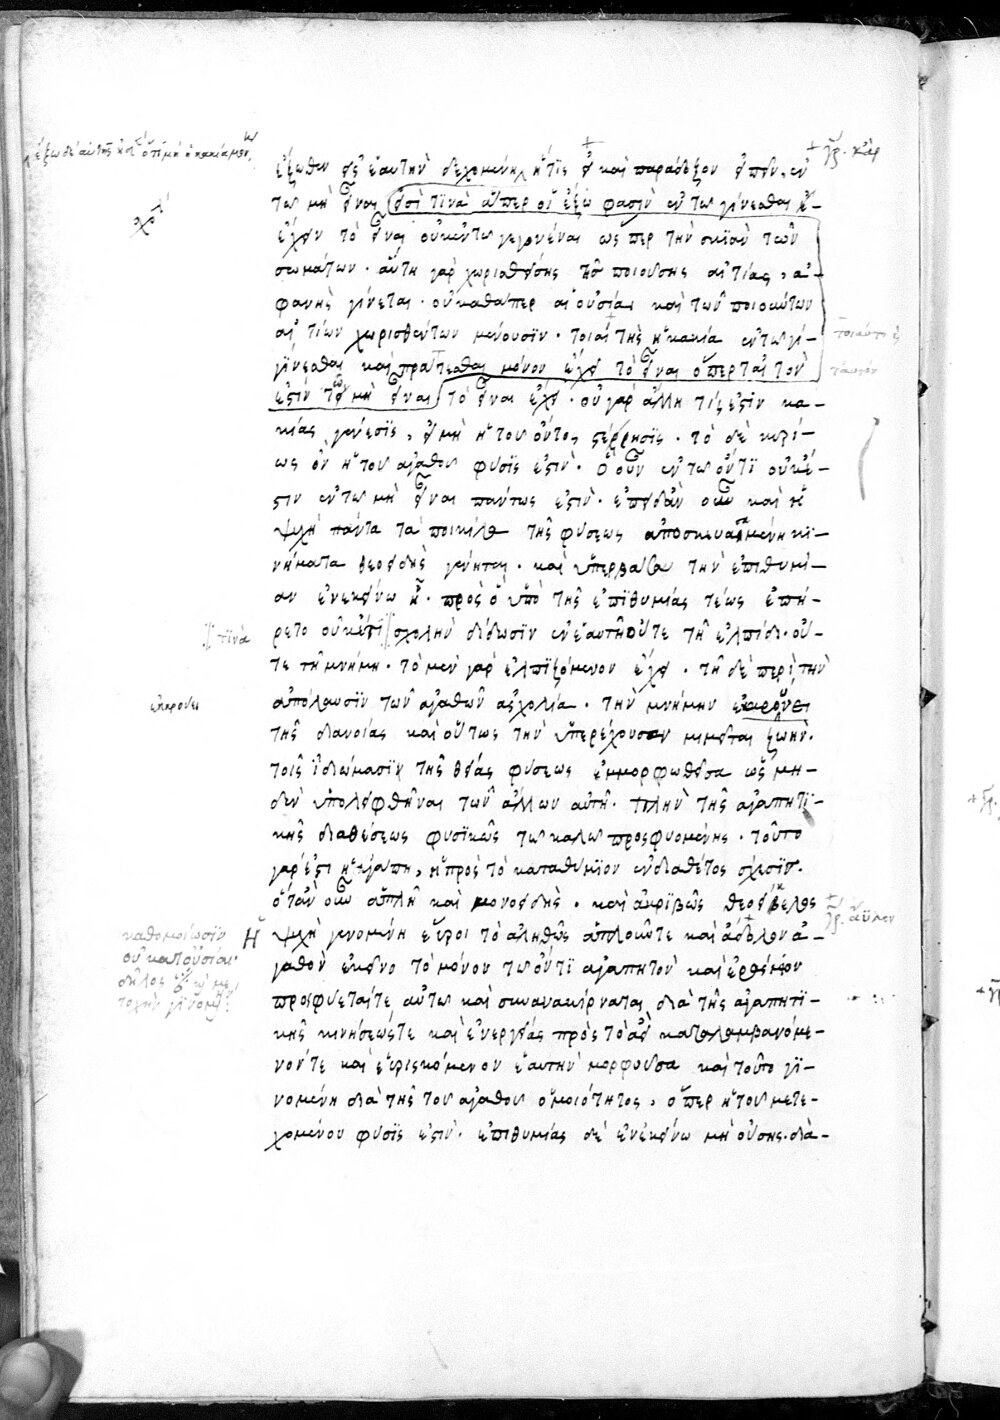 ἔξωθεν εἰς ἑαυτὴν δεχομένη, ἥτις εἰ καὶ παράδοξον εἰπεῖν, ἐν
τῷ μὴ εἶναι (εἰσὶ τινὰ ἅπερ οἱ ἔξω φασὶν ἐν τῷ γίνεσθαι
ἔχειν τὸ εἶναι οὐκ ἐν τῷ γεγονέναι ὥς περ τὴν σκιὰν τῶν
σωμάτων. αὕτη γὰρ χωρισθείσης τῆς ποιούσης αἰτίας, ἀ-
φανὴς γίνεται. οὐ καθάπερ αἱ οὐσίαι καὶ τῶν ποιούντων
αἰτίων χωρισθέντων μένουσιν. τοιαύτης ἡ κακία ἐν τῷ γί-
γίνεσθαι καὶ πράττεσθαι μόνον ἔχει τὸ εἶναι ὅπερ ταὐτὸν
ἐστὶν τῷ μὴ εἶναι) τὸ εἶναι ἔχει. οὐ γὰρ ἄλλη τίς ἐστὶν κα-
κίας γένεσις, εἰ μὴ ἡ τοῦ ὄντος στέρησις. τὸ δὲ κυρί-
ως ὂν ἡ τοῦ ἀγαθοῦ φύσις ἐστὶν. ὃ οὖν ἐν τῷ ὄντι οὐκ ἔ-
στιν ἐν τῷ μὴ εἶναι πάντως ἐστὶν. ἐπειδὰν οὖν καὶ ἡ
ψυχὴ πάντα τὰ ποικίλα τῆς φύσεως ἀποσκευασαμένη κι-
νήματα θεοειδὴς γένηται. καὶ ὑπερβᾶσα τὴν ἐπιθυμί-
αν ἐν ἐκείνῳ ᾖ. πρὸς ὃ ὑπὸ τῆς ἐπιθυμίας τέως ἐπή-
ρετο οὐκέτι // σχολὴν δίδωσιν ἐν ἑαυτῇ οὔτε τῇ ἐλπίδι. οὔ-
τε τῇ μνήμῃ. τὸ μὲν γὰρ ἐλπιζόμενον ἔχει. τῇ δὲ περὶ τὴν
ἀπόλαυσιν τῶν ἀγαθῶν ἀσχολίᾳ. τὴν μνήμην ἐκκρούει
τῆς διανοίας καὶ οὕτως τὴν ὑπερέχουσαν μιμεῖται ζωὴν.
τοῖς ἰδιώμασιν τῆς θείας φύσεως ἐμμορφωθεῖσα ὡς μη-
δὲν ὑπολειφθῆναι τῶν ἄλλων αὐτῇ. πλὴν τῆς ἀγαπητι-
κῆς διαθέσεως φυσικῶς τῷ καλῷ προσφυομένης. τοῦτο
γάρ ἐστι ἡ ἀγάπη, ἡ πρὸς τὸ καταθύμιον ἐνδιάθετος σχέσις.
ὅταν οὖν ἁπλῆ καὶ μονοειδὴς. καὶ ἀκριβῶς θεοείκελος
Ἡ ψυχὴ γενομένη εὕροι τὸ ἀληθῶς ἁπλοῦν τε καὶ ἀείδωλον ἀ-
γαθὸν ἐκεῖνο τὸ μόνον τῷ ὄντι ἀγαπητὸν καὶ ἐράσμιον
προσφύεταί τε αὐτῷ καὶ συνανακίρναται διὰ τῆς ἀγαπητι-
κῆς κινήσεώς τε καὶ ἐνεργείας πρὸς τὸ ἀεὶ καταλαμβανόμε-
νόν τε καὶ εὑρισκόμενον ἑαυτὴν μορφοῦσα καὶ τοῦτο γι-
νομένη διὰ τῆς τοῦ ἀγαθοῦ ὁμοιότητος, ὅπερ ἡ τοῦ μετε-
χομένου φύσις ἐστὶν. ἐπιθυμίας δὲ ἐν ἐκείνῳ μὴ οὔσης. διὰ-
σχό
// τινὰ
ἐκκρούει
καθομοίωσιν
οὐ κατ' οὐσίαν
τοιαύτη
ταυτόν
+ γρ. ἄϋλον